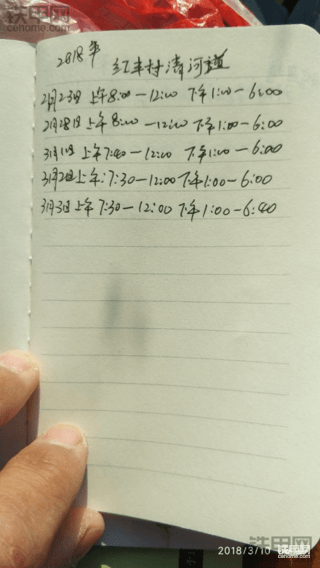 铁甲网
cehome.com
2018年
红丰村清河道
2月23日 上午8:00—12:00 下午1:00—6:00
2月28日 上午8:00—12:00 下午1:00—6:00
3月1日 上午7:40—12:00 下午1:00—6:00
3月2日 上午:7:30—12:00 下午1:00—6:00
3月3日 上午7:30—12:00 下午1:00—6:40
铁甲网
2018/3/10
cehome.com